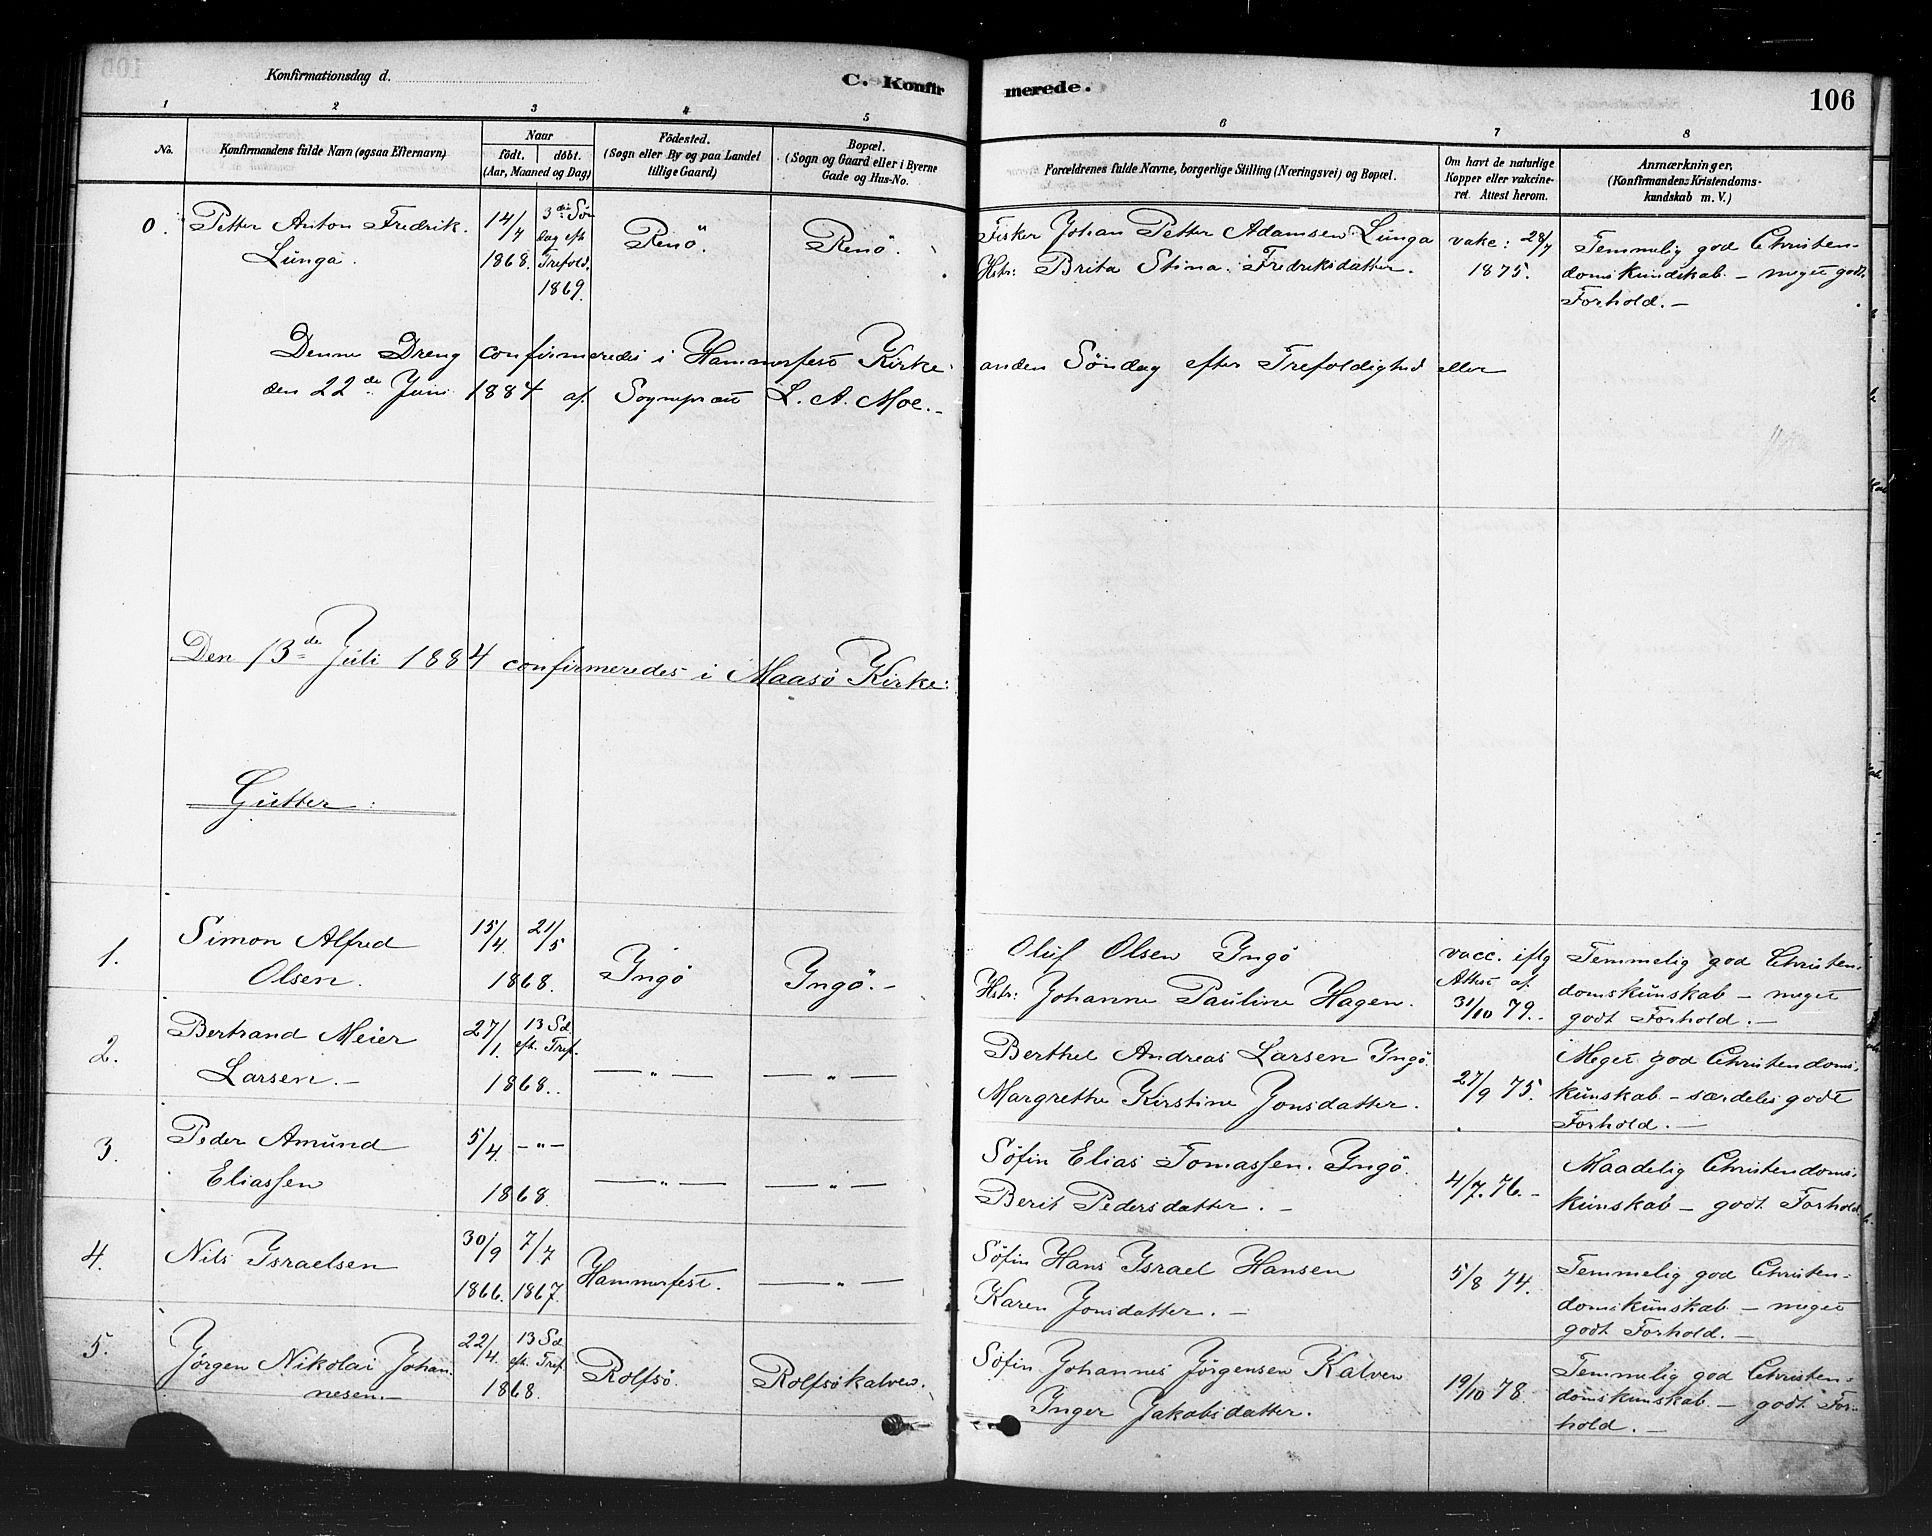 Konfirmationsdag d.
C. Konfirmerede.
106
1 2 3 4 5 6 7 8
No.
Konfirmandens fulde Navn (ogsaa Efternavn)
Naar
födt. döbt.
(Aar, Maaned og Dag)
Födested.
(Sogn eller By og paa Landet
tillige Gaard)
Bopæl.
(Sogn og Gaard eller i Byerne
Gade og Hus-No.
Forældrenes fulde Navne, borgerlige Stilling (Næringsvei) og Bopæl.
Om havt de naturlige
Kopper eller vakcine-
ret. Attest herom.
Anmærkninger,
(Konfirmandens Kristendoms-
kundskab m. V.)
0. Petter Anton Fredrik
Lunga.
14/7
1868.
3die Søn
dag eft
Trefold.
1869.
Renö.
Renö.
Fisker Johan Petter Adamsen Lunga
Hstr: Brita Stina Fredriksdatter.
vakc: 28/7
1875.
Temmelig god Christen-
domskundskab. — meget godt
Forhold. —
Denne Dreng confirmeredes i Hammerfest Kirke anden Söndag efter Trefoldighed eller
den 22de Juni 1884 af Sognepræst L. A. Moe. —
Den 13de Juli 1884 confirmeredes i Maasö Kirke:
Gutter:
1. Simon Alfred
Olsen.
15/4. 21/5
1868.
Ingö
Ingö. —
Oluf Olsen Ingö
Hstr: Johanne Pauline Hagen.
vacc. iflg
Attest af
31/10 79.
Temmelig god Christen-
domskunskab — meget
godt Forhold. —
2. Bertrand Meier
Larsen. —
27/1. 13 Sd.
eft. Tref.
1868.
— " —
— " —
Berthel Andreas Larsen Ingö.
Margrethe Kirstine Jonsdatter.
27/9 75.
Meget god Christendoms-
kunskab — særdeles godt
Forhold. —
3. Peder Amund
Eliassen
5/4. — " —
1868.
— " —
— " —
Söfin Elias Tomassen. Ingö.
Berit Pedersdatter. —
4/7. 76. —
Maadelig Christendoms-
kunskab — godt Forhold
4. Nils Israelsen
30/9 7/7
1866. 1867.
Hammerfest.
— " —
Söfin Hans Israel Hansen
Karen Jonsdatter. —
5/8 74.
Temmelig god Christen-
domskunskab — meget
godt Forhold. —
5. Jörgen Nikolai Johan-
nesen. —
22/4. 13 Sd.
eft. Tref.
1868.
Rolfsö.
Rolfsökalven.
Söfin Johannes Jørgensen Kalven
Inger Jakobsdatter.
19/10 78.
Temmelig god Christen-
domskunskab — godt For-
hold. —